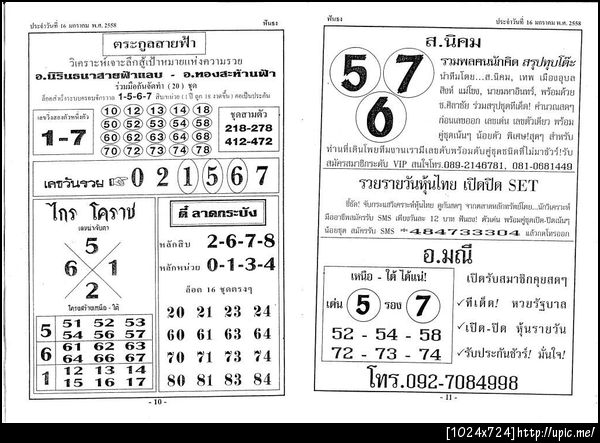 ประจำวันที่ 16 มกราคม พ.ศ. 2558
พันธง
ตระกูลสายฟ้า
วิเคราะห์เจาะลึกสู่เป้าหมายแห่งความรวย
อ.นิรันธนาสายฟ้าแลบ - อ.ทองสะท้านฟ้า
ร่วมมือกันจัดทำ (20) ชุด
1-5-6-7
เลขวิ่งสองตัวหนึ่งตัว
1-7
10 12 13 14 18
50 52 53 54 58
60 62 63 64 68
70 72 73 74 78
ชุดสามตัว
218-278
412-472
เลขวันรวย 0 2 1 5 6 7
ไกร โคราช
เลขน่าจับตา
5
6 1
2
โครงสร้างเหนือ - ใต้
5 51 52 53
54 56 57
6 61 62 63
64 66 67
1 12 13 14
15 16 17
ตี๋ ลาดกระบัง
หลักสิบ 2-6-7-8
หลักหน่วย 0-1-3-4
ล็อค 16 ชุดตรงๆ
20 21 23 24
60 61 63 64
70 71 73 74
80 81 83 84
- 10 -
พันธง
ประจำวันที่ 16 มกราคม พ.ศ. 2558
5 7
6
ส.นิคม
รวมพลคนนักคิด สรุปทุบโต๊ะ
นำทีมโดย...ส.นิคม, เทพ เมืองอุบล
สิงห์ แม่โขง, นายมหาอินทร์, พร้อมด้วย
ธ.ศิลาชัย ร่วมสรุปชุดทีเด็ด! คำนวณสดๆ
ก่อนเลขออก เลขเด่น เลขตัวเดียว พร้อม
คู่ชุดเน้นๆ น้อยตัว พิเศษ!สุดๆ สำหรับ
ท่านที่เดินโพยทีมงานเรามีเลขดับพร้อมตัวคู่ชุดชนิดที่ไม่มาชัวร์!รับ
สมัครสมาชิกระดับ VIP สนใจโทร.089-2146781, 081-0681449
รวยรายวันหุ้นไทย เปิดปิด SET
มืออาชีพสมัครรับ SMS เพียงวันละ 12 บาท
น้อยชุด สมัครรับ SMS *484733304 แล้วกดโทรออก
อ.มณี
เหนือ - ใต้ ได้แน่!
เด่น 5 รอง 7
52 - 54 - 58
72 - 73 - 74
เปิดรับสมาชิกคุยสดๆ
✓ทีเด็ด! หวยรัฐบาล
✓เปิด-ปิด หุ้นรายวัน
✓รับประกันชัวร์! มั่นใจ!
โทร.092-7084998
- 11 -
[1024x724]http://upic.me/